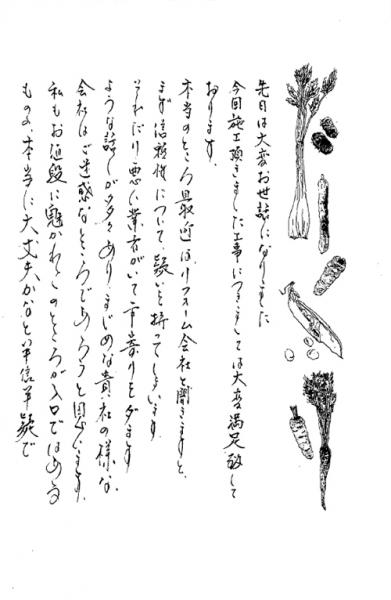 先日は大変お世話になりました
今回施工頂きました工事につきましては大変満足致して
おります。
本当のところ最近はリフォーム会社と聞きますと、
まず信頼性について疑いを持ってしまいます。
それだけ悪い業者がいて年寄りをダます
ような話しが多々ありまじめな貴社の様な
会社はご迷惑なところであろうと思います。
私もお値段に魅かれてのところが入口ではある
ものの、本当に大丈夫かなと半信半疑で